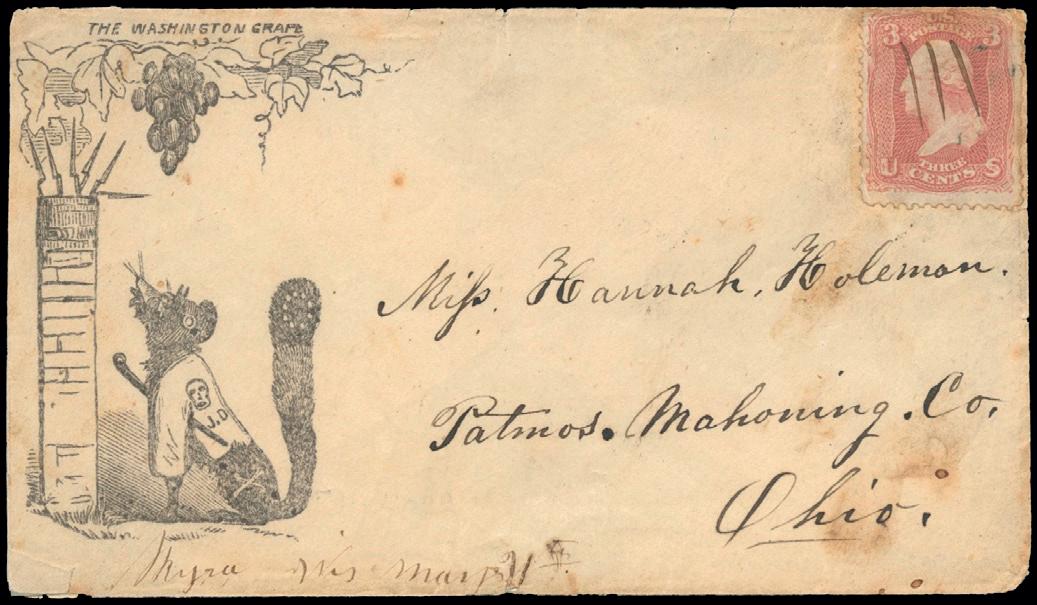 THE WASHINGTON GRAPE
U.S.
POSTAGE
3 3
THREE
CENTS
U S
J.D
Miss. Hannah. Holeman.
Patmos. Mahoning. Co.
Ohio.
Myra